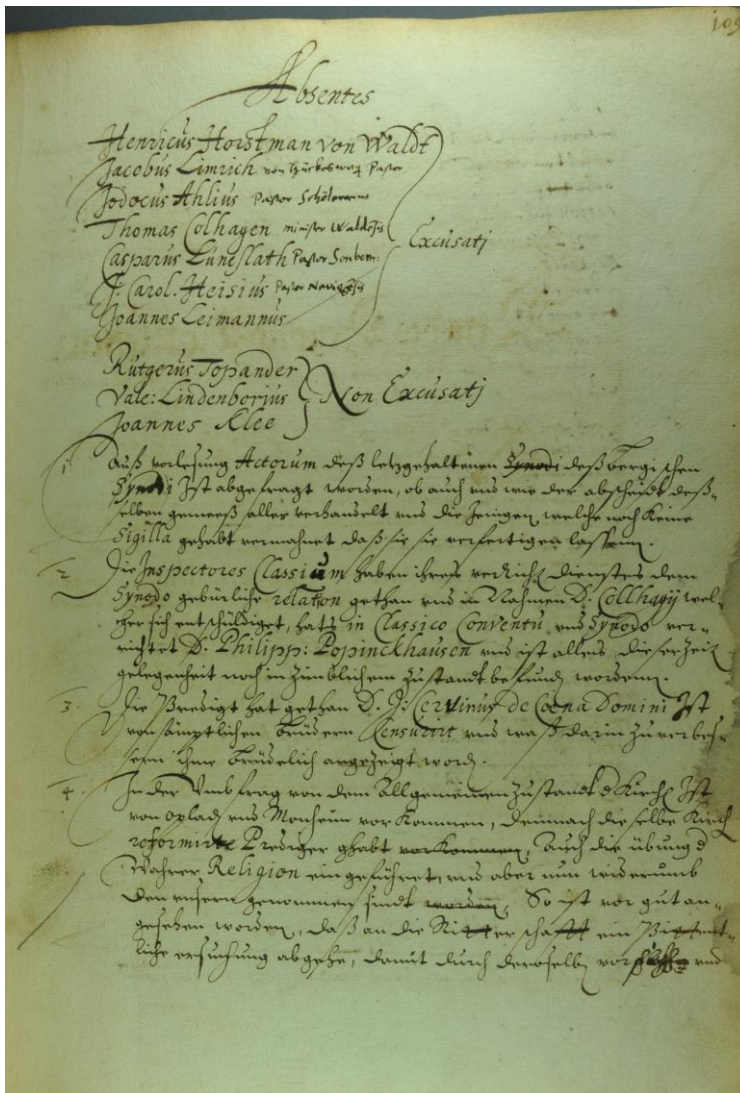 109
Absentes
Henricus Horstman von Waldt
Jacobus Limrich von Hückeswag Pastor
Jodocus Ahlius Pastor Schölerensis
Thomas Colhagen minister Waldensis
Casparus Lüneslath Pastor Sonborn:
J. Carol. Heisius Pastor Nevigensis
Joannes Leimannus
Excusatj
Rütgerus Topander
Vale: Lindenborius
Joannes Klee
Non Excusatj
1. Auß vorlesung Actorum deß letzgehaltenen Synodi deß bergischen
Synodi Ist abgefragt worden, ob auch vns wie der abscheidt deß-
selben gemeeß alles verhandelt vnd die Jenigen welche noch keine
Sigilla gehabt vermahnet daß sie sie verfertigen lassen.
2 Die Inspectores Classium haben ihres verricht dienstes dem
Synodo gebürliche relation gethan vnd in Nahmen D. Collhagij wel-
cher sich entschüldiget, hats in Classico Conventu vnd Synodo ver-
richtet D. Philipp: Popinckhausen vnd ist alles dieser Zeit
gelegenheit noch in zimblichem zustandt befunden worden.
3. Die Predigt hat gethan D. J: Cervinus de Coena Domini Ist
von sämptlichen brüdern Censurirt vnd waß darin zu verbeß-
sern ihme brüderlich angezeigt word.
4 In der Vmbfrag von dem Allgemeinen zustandt d Kirch Ist
von Oplad vnd Monheim vor kommen, demnach dieselbe Kirch
reformirte Prediger ghabt vorkommen, Auch die übung d
Wahrer Religion eingeführet, vnd aber nun widerumb
den vnsern genommen sindt worden, So ist vor gut an-
gesehen worden, daß an die Ritterschafft ein
liche ersuchung abgehe, damit durch deroselb vnd